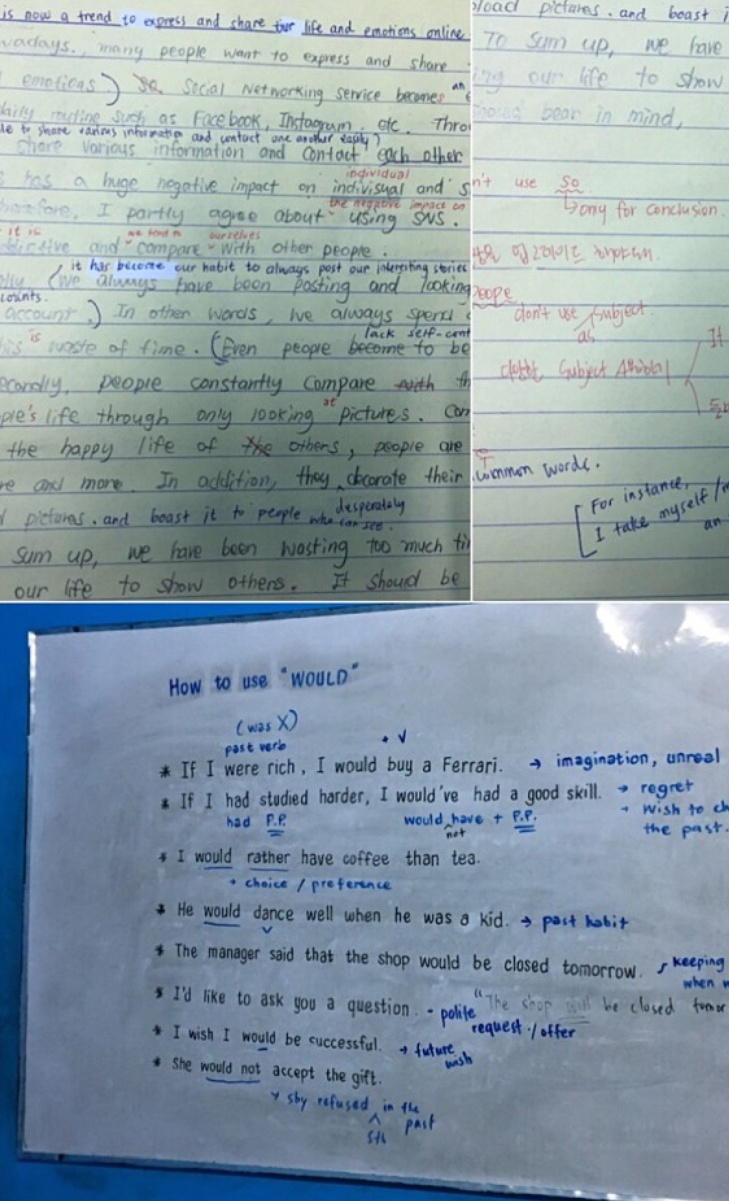 is now a trend to express and share our life and emotions online
many people want to express and share
emotions.) So Social Networking service becomes an
daily routine such as Facebook, Instagram, etc. Throu
le to share various information and contact one another easily?
share various information and contact each other
individual
s has a huge negative impact on indivisual and s
the negative impact on
herefore, I partly agree about using SNS.
it is we tend to ourselves
ddictive and compare with other people.
it has become our habit to always post our interesting stories
(We always have been posting and looking
counts.
account.) In other words, we always spend
is lack self-cont
his waste of time. (Even people become to be
econdly, people constantly compare with th
at
ple's life through only looking pictures. Con
the happy life of the others, people are
re and more. In addition, they decorate their
desperately
pictures. and boast it to people who can see.
sum up, we have been wasting too much ti
our life to show others. It should be
load pictures. and boast i
To sum up, we have
ing our life to show
bear in mind,
n't use so
only for conclusion.
don't use subject.
as
Subject
It
common words.
For instance,
I take myself
an
How to use "WOULD"
(was X)
past verb + V
* If I were rich, I would buy a Ferrari. → imagination, unreal
* If I had studied harder, I would've had a good skill. → regret
had P.P. would have + P.P. → wish to ch
not the past.
* I would rather have coffee than tea.
→ choice / preference
* He would dance well when he was a kid. → past habit
V
* The manager said that the shop would be closed tomorrow. keeping
when w
"The shop will be closed tomor
* I'd like to ask you a question. - polite
request / offer
* I wish I would be successful. → future
wish
* She would not accept the gift.
sby refused in the
sth past